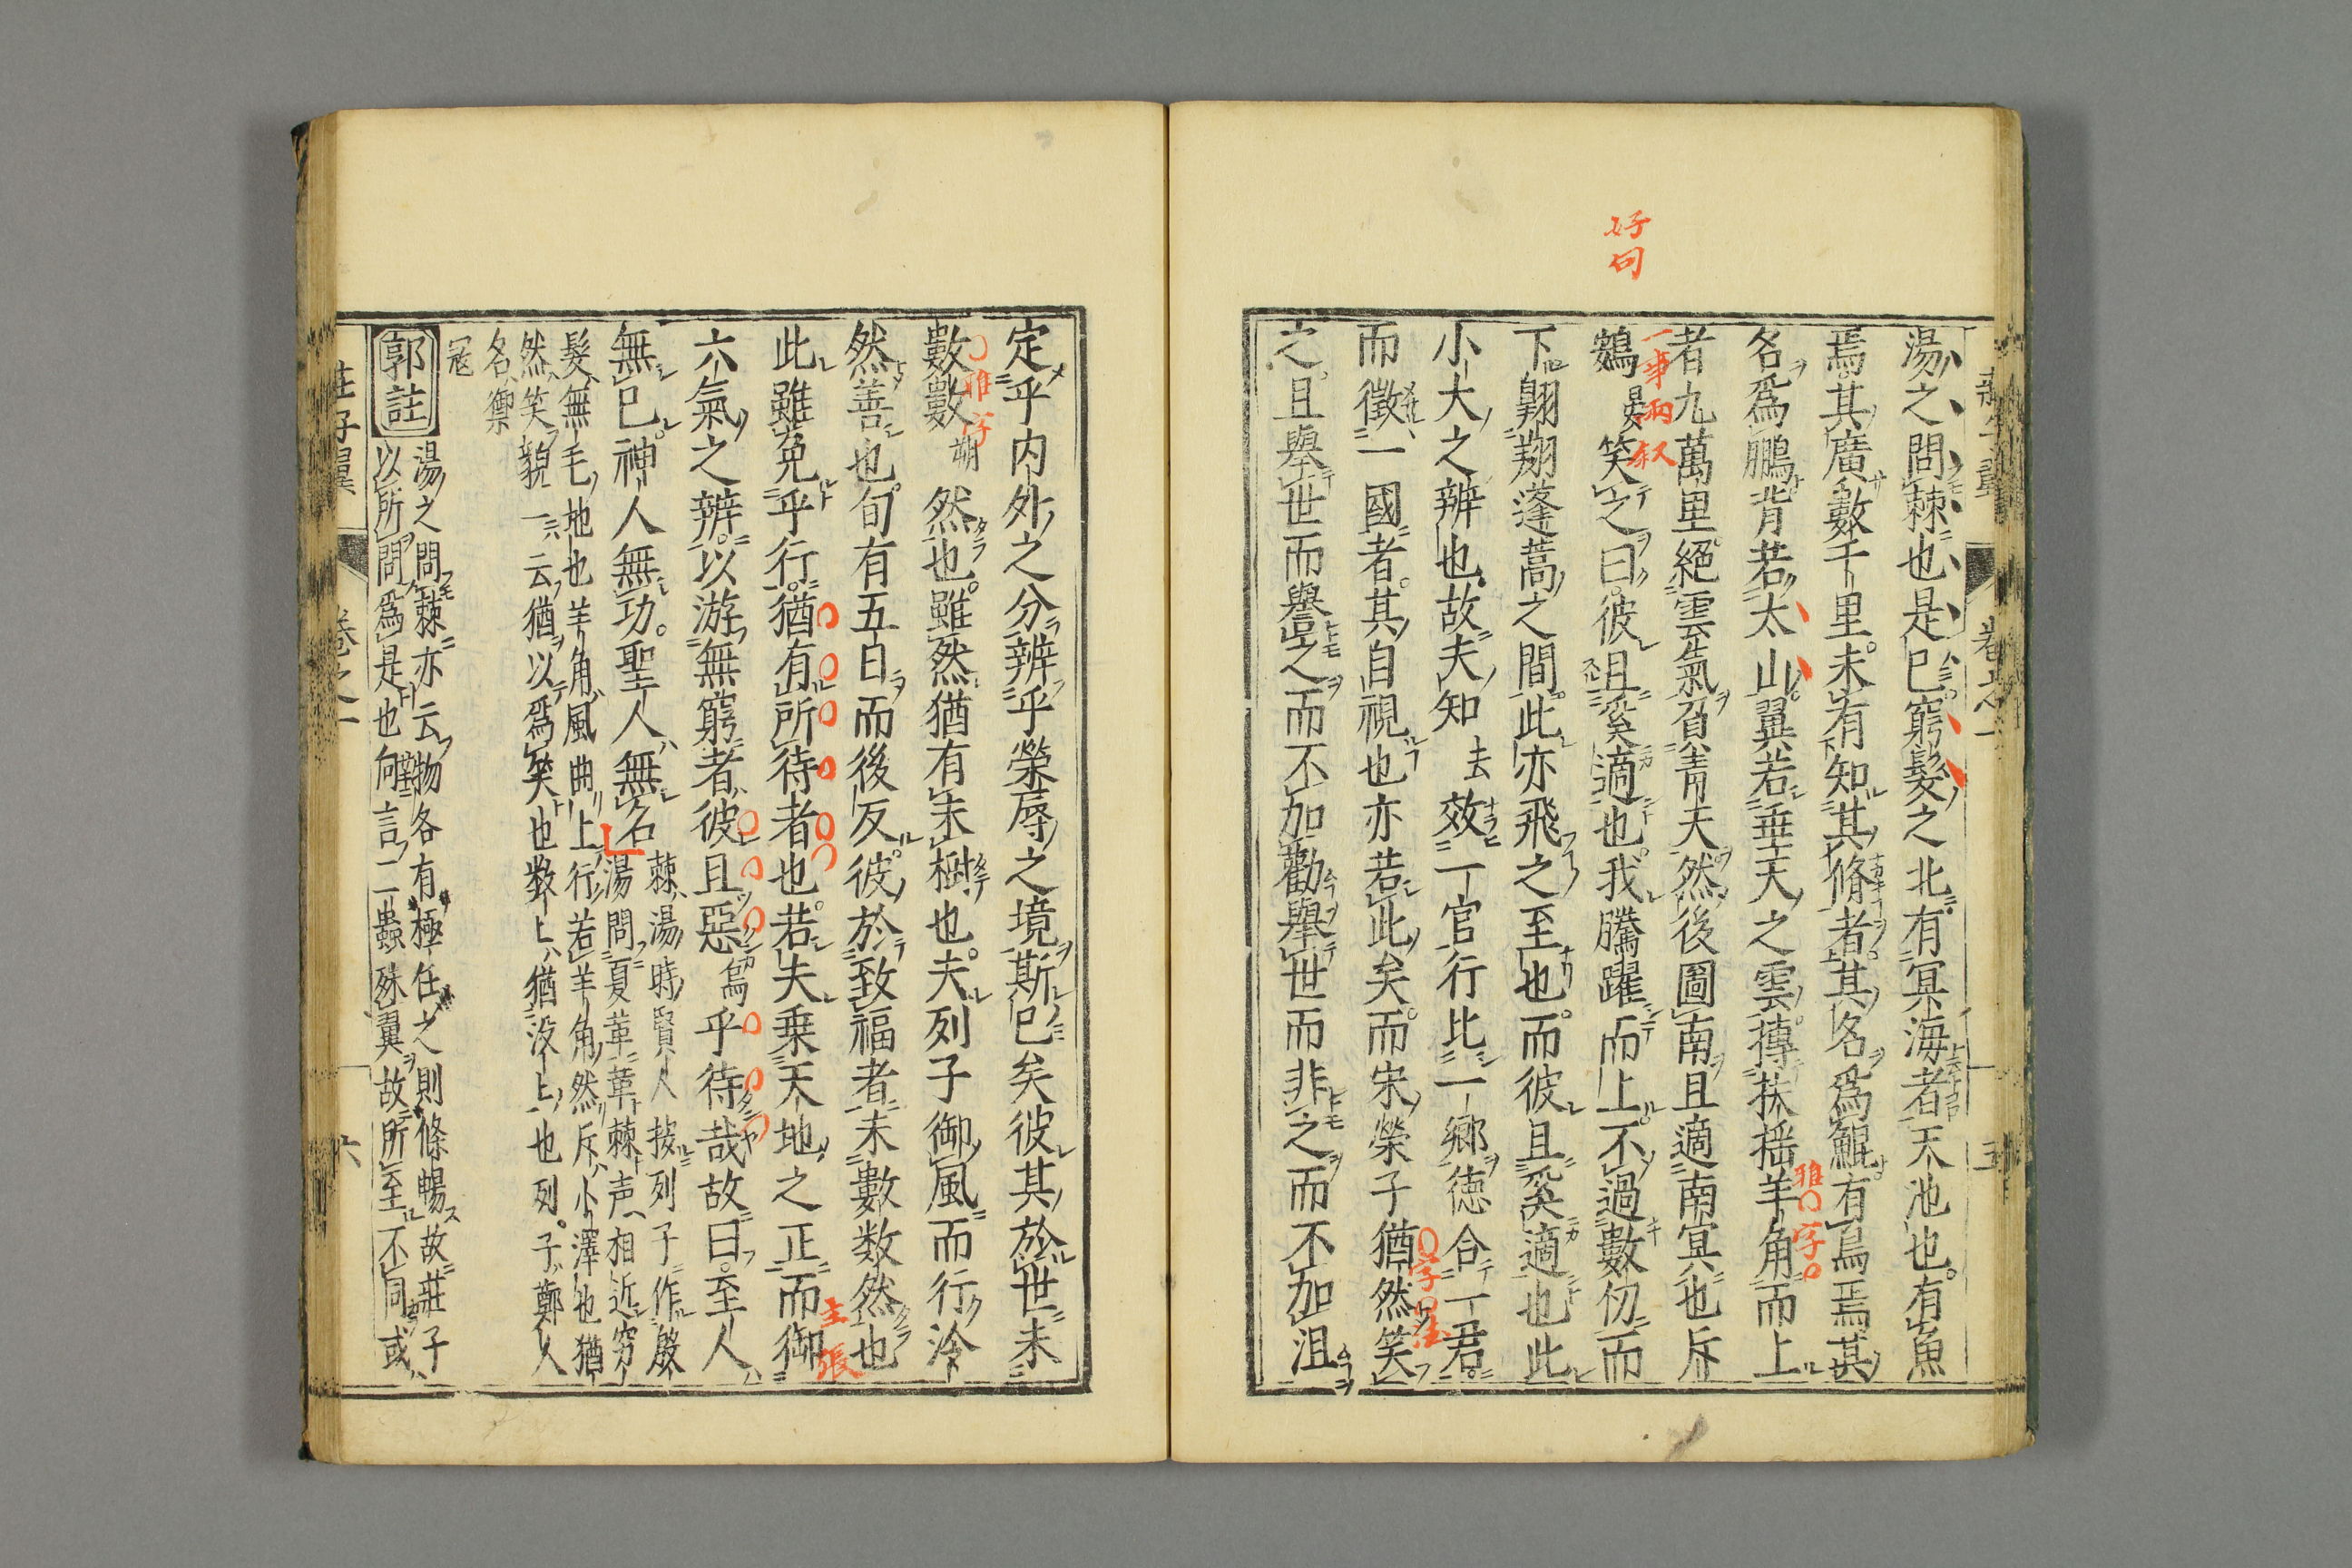 好句
湯之問棘也是已窮髮之北有冥海者天池也有魚
焉其廣數千里未有知其脩者其名爲鯤有鳥焉其
名爲鵬背若太山翼若垂天之雲摶扶搖羊角而上
雅字
者九萬里絕雲氣負靑天然後圖南且適南冥也斥
一事兩叙
鷃晏笑之曰彼且奚適也我騰躍而上不過數仞而
下翺翔蓬蒿之間此亦飛之至也而彼且奚適也此
小大之辨也故夫知去效一官行比一鄕德合一君
而徵一國者其自視也亦若此矣而宋榮子猶然笑
字法
之且舉世而譽之而不加勸舉世而非之而不加沮
莊子翼 卷之一 五
定乎内外之分辨乎榮辱之境斯已矣彼其於世未
數數朔然也雖然猶有未樹也夫列子御風而行泠
雅字
然善也旬有五日而後反彼於致福者未數数然也
此雖免乎行猶有所待者也若夫乗天地之正而御
主張
六氣之辨以游無窮者彼且惡爲乎待哉故曰至人
無已神人無功聖人無名
棘湯時賢人按列子作殷
湯問夏革革棘声相近窮
髮無毛地也羊角風曲上行若羊角然斥小澤也猶
然笑貌一云猶以爲笑也数上猶没上也列子鄭人
名禦
寇
郭註
湯之問棘亦云物各有極任之則條暢故莊子
以所問爲是也向言二蟲殊翼故所至不同或
莊子翼 卷之一 六